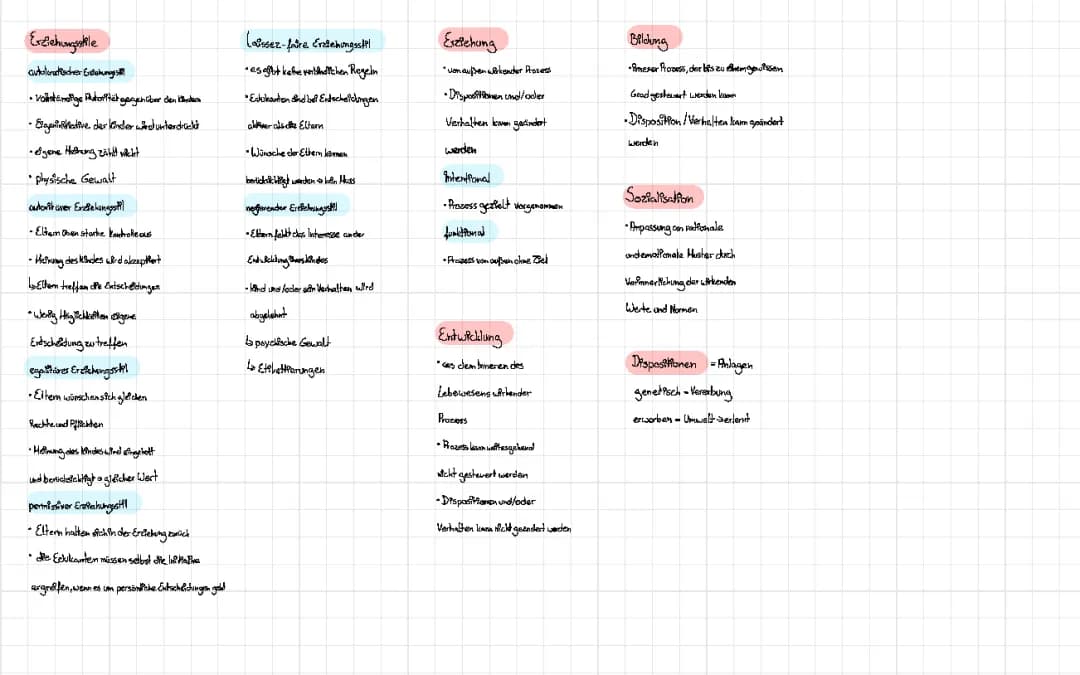 Erziehungsstile
autokratischer Erziehungsstil
• vollständige Autorität gegenüber den Kindern
• Eigeninitiative der Kinder wird unterdrückt
• eigene Meinung zählt nicht
• physische Gewalt
autoritärer Erziehungsstil
• Eltern üben starke Kontrolle aus
• Meinung des Kindes wird akzeptiert
↳ Eltern treffen die Entscheidungen
• wenig Möglichkeiten eigene
Entscheidung zu treffen
egalitärer Erziehungsstil
• Eltern wünschen sich gleichen
Rechte und Pflichten
• Meinung des Kindes wird eingeholt
und berücksichtigt → gleicher Wert
permissiver Erziehungsstil
• Eltern halten sich in der Erziehung zurück
• die Edukanten müssen selbst die Initiative
ergreifen, wenn es um persönliche Entscheidungen geht
Laissez-faire Erziehungsstil
• es gibt keine verbindlichen Regeln
• Edukanten sind bei Entscheidungen
aktiver als die Eltern
• Wünsche der Eltern können
berücksichtigt werden → kein Muss
negierender Erziehungsstil
• Eltern fehlt das Interesse an der
Entwicklung ihres Kindes
• Kind und/oder sein Verhalten wird
abgelehnt
↳ psychische Gewalt
↳ Etikettierungen
Erziehung
• von außen wirkender Prozess
• Dispositionen und/oder
Verhalten kann geändert
werden
intentional
• Prozess gezielt vorgenommen
funktional
• Prozess von außen ohne Ziel
Entwicklung
• aus dem Inneren des
Lebewesens wirkender
Prozess
• Prozess kann weitesgehend
nicht gesteuert werden
• Dispositionen und/oder
Verhalten kann nicht geändert werden
Bildung
• innerer Prozess, der bis zu einem gewissen
Grad gesteuert werden kann
• Disposition/Verhalten kann geändert
werden
Sozialisation
• Anpassung an rationale
und emotionale Muster durch
Verinnerlichung der wirkenden
Werte und Normen
Dispositionen = Anlagen
genetisch = Vererbung
erworben = Umwelt → erlernt